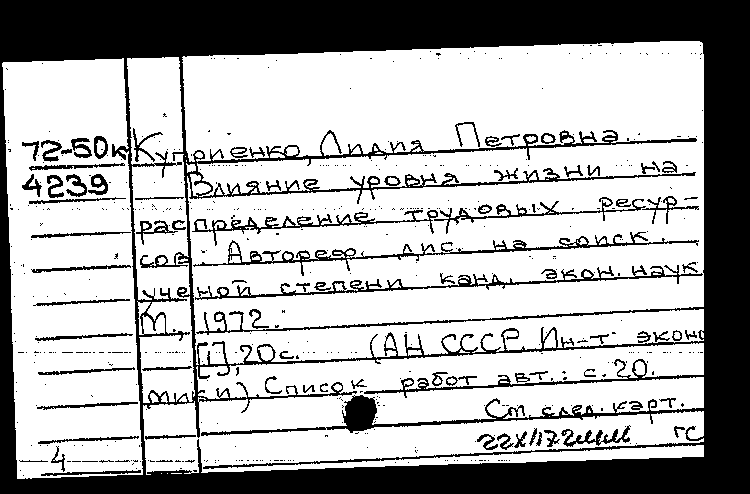 72-50к Куприенко, Лидия Петровна.
4239 Влияние уровня жизни на
распределение трудовых ресур-
сов: Автореф. дис. на соиск.
ученой степени канд. экон. наук
М., 1972.
[1], 20 с. (АН СССР. Ин-т эконо
мики). Список работ авт.: с. 20.
См. след. карт.
ГС
4